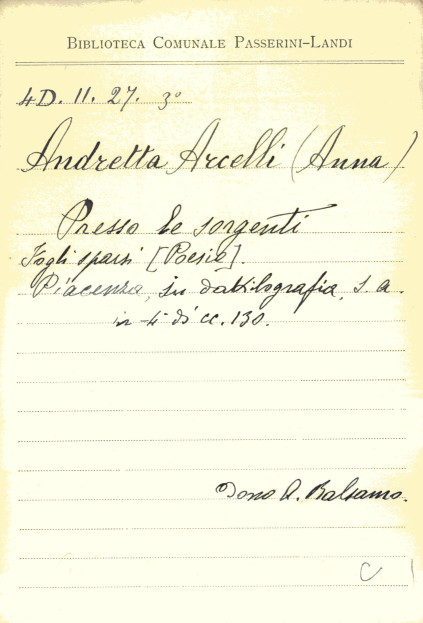 BIBLIOTECA COMUNALE PASSERINI-LANDI
4D. II. 27. 3°
Andretta Arcelli (Anna)
Presso le sorgenti
Fogli sparsi [Poesie].
Piacenza, in dattilografia, s. a.
in 4° di cc. 130.
Dono A. Balsamo.
C